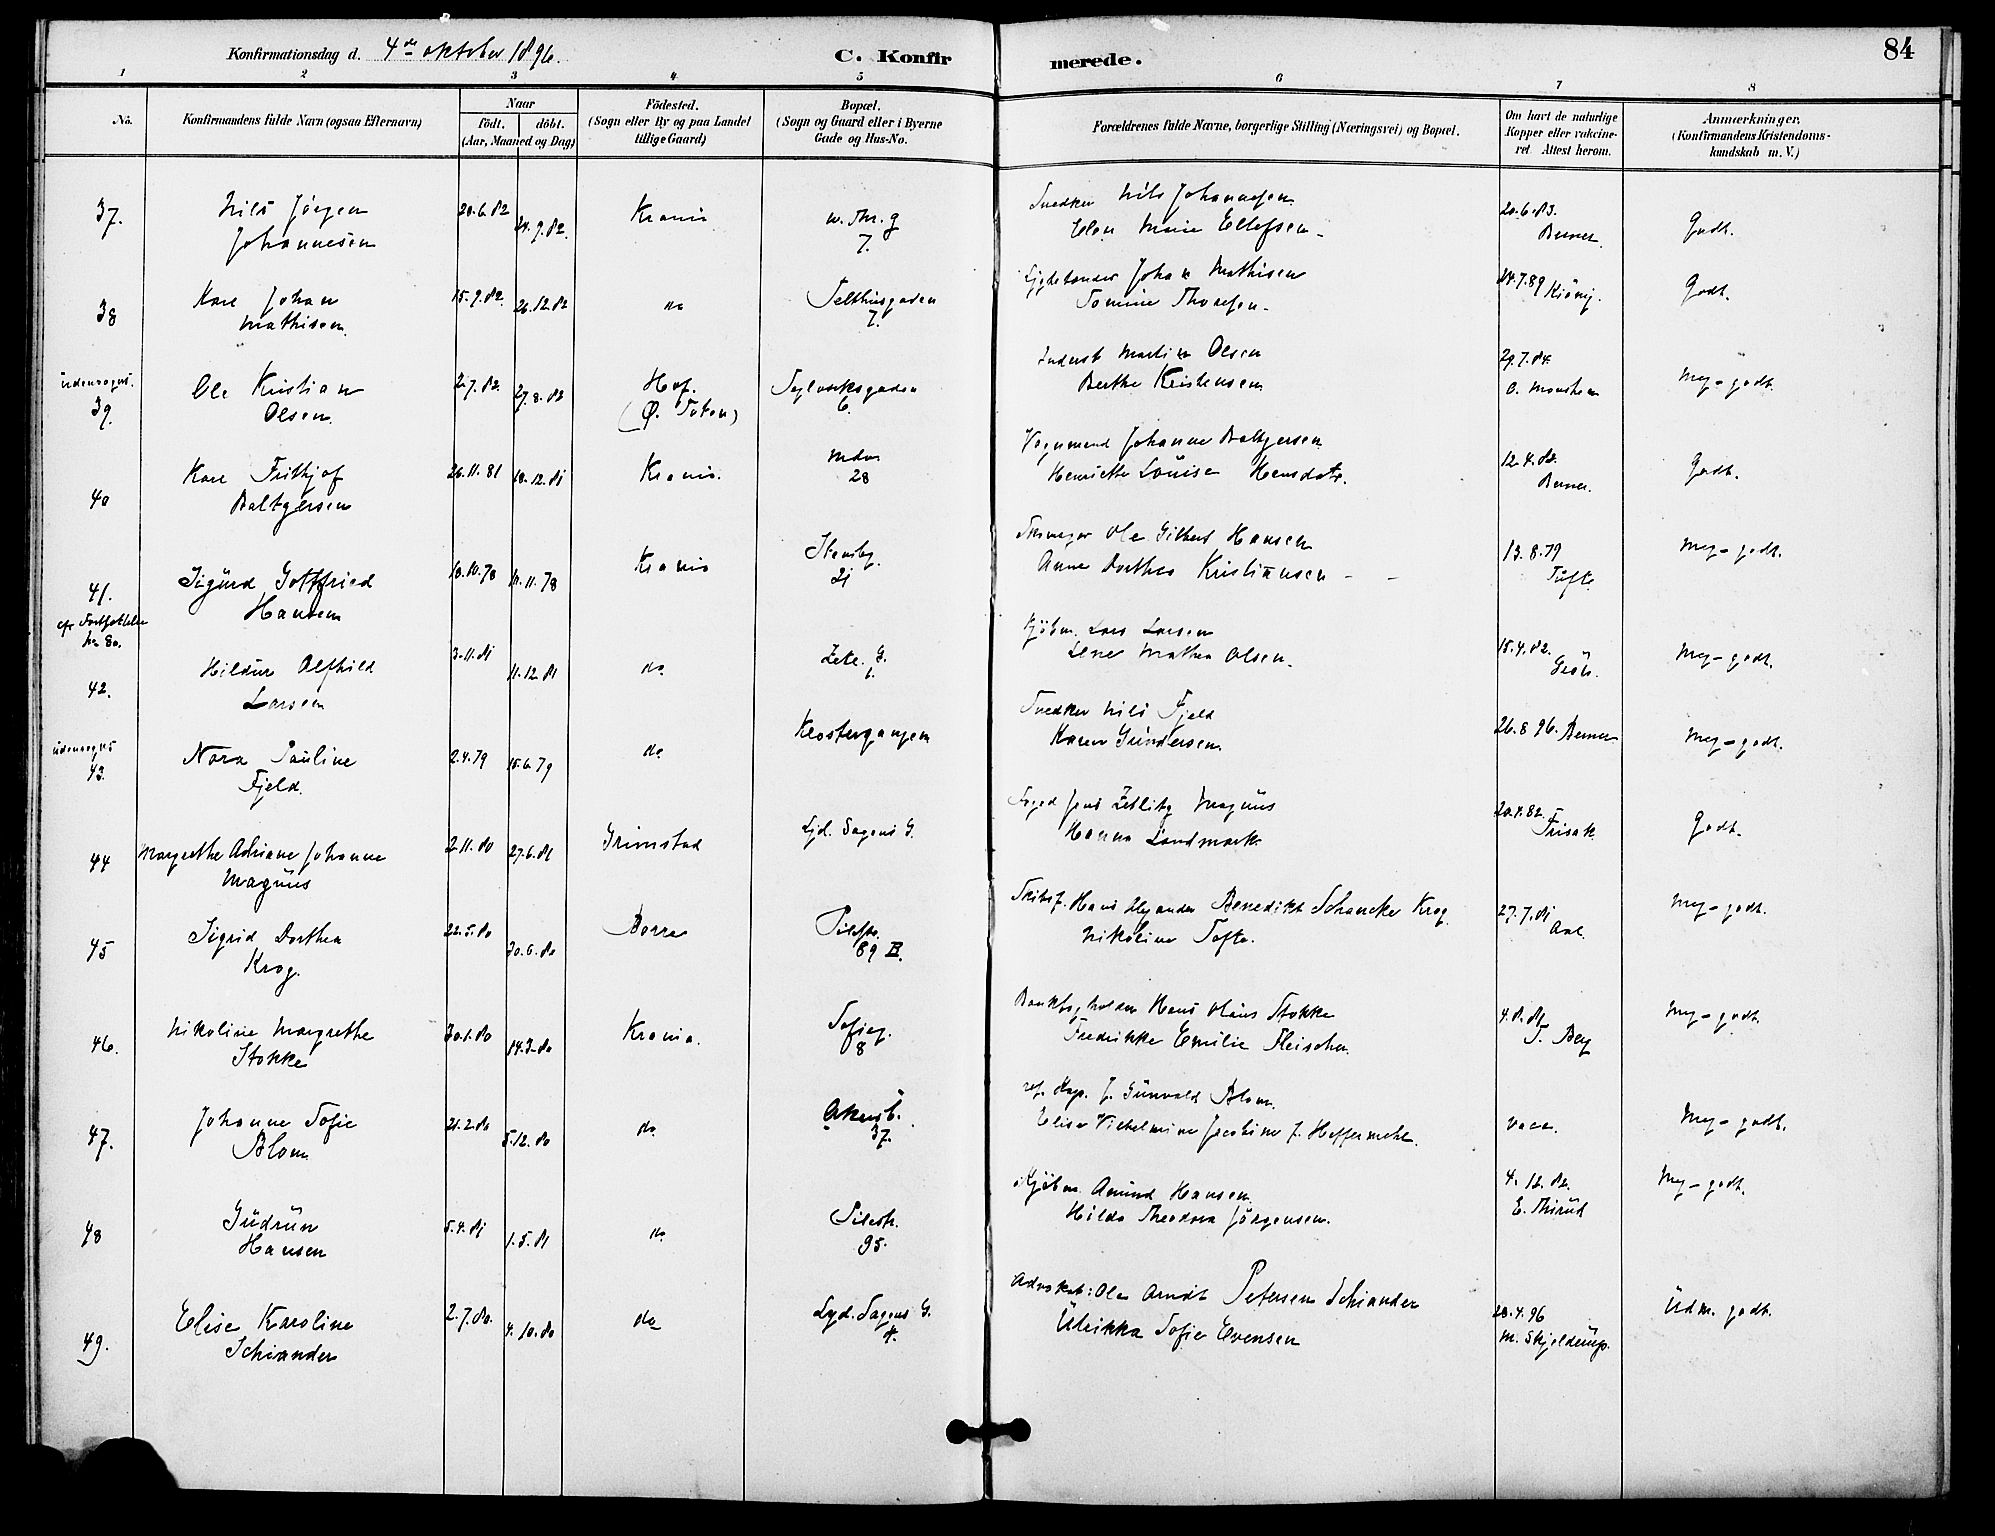 84
Konfirmationsdag d. 4de oktober 1896.
C. Konfirmerede.
1 2 3 4 5 6 7 8
No.
Konfirmandens fulde Navn (ogsaa Efternavn)
Naar
födt. döbt.
(Aar, Maaned og Dag)
Födested.
(Sogn eller By og paa Landet
tillige Gaard)
Bopæl.
(Sogn og Gaard eller i Byerne
Gade og Hus-No.
Forældrenes fulde Navne, borgerlige Stilling (Næringsvei) og Bopæl.
Om havt de naturlige
Kopper eller vakcine-
ret Attest herom.
Anmærkninger.
(Konfirmandens Kristendoms-
kundskab m. V.)
37. Nils Jörgen
Johannesen
20.6.82 24.9.82. Krania
7.
Snedker Nils Johannesen
Elen Marie Ellefsen
20.6.83.
Berner.
Godt.
38 Karl Johan
Mathisen.
15.9.82. 26.12.82 do Telthusgaden
7.
Johan Mathisen
Tomine Thoresen
14.7.89
Godt.
udensogns.
39. Ole Kristian
Olsen.
2.7.82. 27.8.82 Hof.
(Ø. Toten)
Teglverksgaden
6.
Inderst Martin Olsen
Berthe Kristensen
29.7.84.
Meg-godt.
40 Karl Frithjof
Baltzersen
26.11.81 18.12.81 Krania.
28
Vognmand Johanne Baltzersen
Henriette Louise Hansdatr.
12.4.82.
Berner.
Godt.
41. Sigurd Gottfried
Hansen
18.10.78 10.11.78 Krania Stensbg.
21
Ole Gilbert Hansen
Anne Dorthea Kristiansen
13.8.79
Tufte.
Meg-godt.
No 80.
42. Hildur Alfhild
Larsen
3.11.81 11.12.81 do G.
1.
Kjöbm. Lars Larsen
Lene Mathea Olsen.
15.4.82.
Meg-godt.
udensogns
43. Nora Pauline
Fjeld.
2.4.79 15.6.79 do Klostergangen
Snedker Nils Fjeld
Karen Gundersen
26.8 96. Berner
Meg-godt.
44 Margrethe Adriane Johanne
Magnus
2.11.80 27.6.81 Grimstad Lyd. Sagens G.
Foged Jens Zetlitz Magnus
Hanna Landmark
20.4.82.
Godt.
45 Sigrid Dorthea
Krog.
22.5.80 30.6.80 Borre Pilestr.
89 B.
Skibsf. Hans Alexander Benedikt Schancke Krog
Nikoline Tofte.
27.7.81
Meg-godt.
46. Nikoline Margrethe
Stokke
30.1.80 14.3.80 Krania. Sofieg.
8
Hans Olaus Stokke
Fredrikke Emilie Fleischer
4.8.81
T. Berg
Meg-godt.
47. Johanne Sofie
Blom
21.2.80 5.12.80 do Akersb.
37.
J. Gunvald Blom.
Elise Vilhelmine Jacobine f. Heffermehl.
vacc.
Meg-godt.
48 Gudrun
Hansen
5.4.81 1.5.81 do Pilestr.
95.
Kjöbm. Amund Hansen
Hilda Theodora Jörgensen.
4.12.82.
Meg-godt.
49. Elise Karoline
Schiander
2.7.80. 4.10.80 do Lyd. Sagens G.
4.
Advokat: Ole Arndt Petersen Schiander
Ulrikka Sofie Evensen
28.4.96
M. Skjelderup.
Udm. godt.